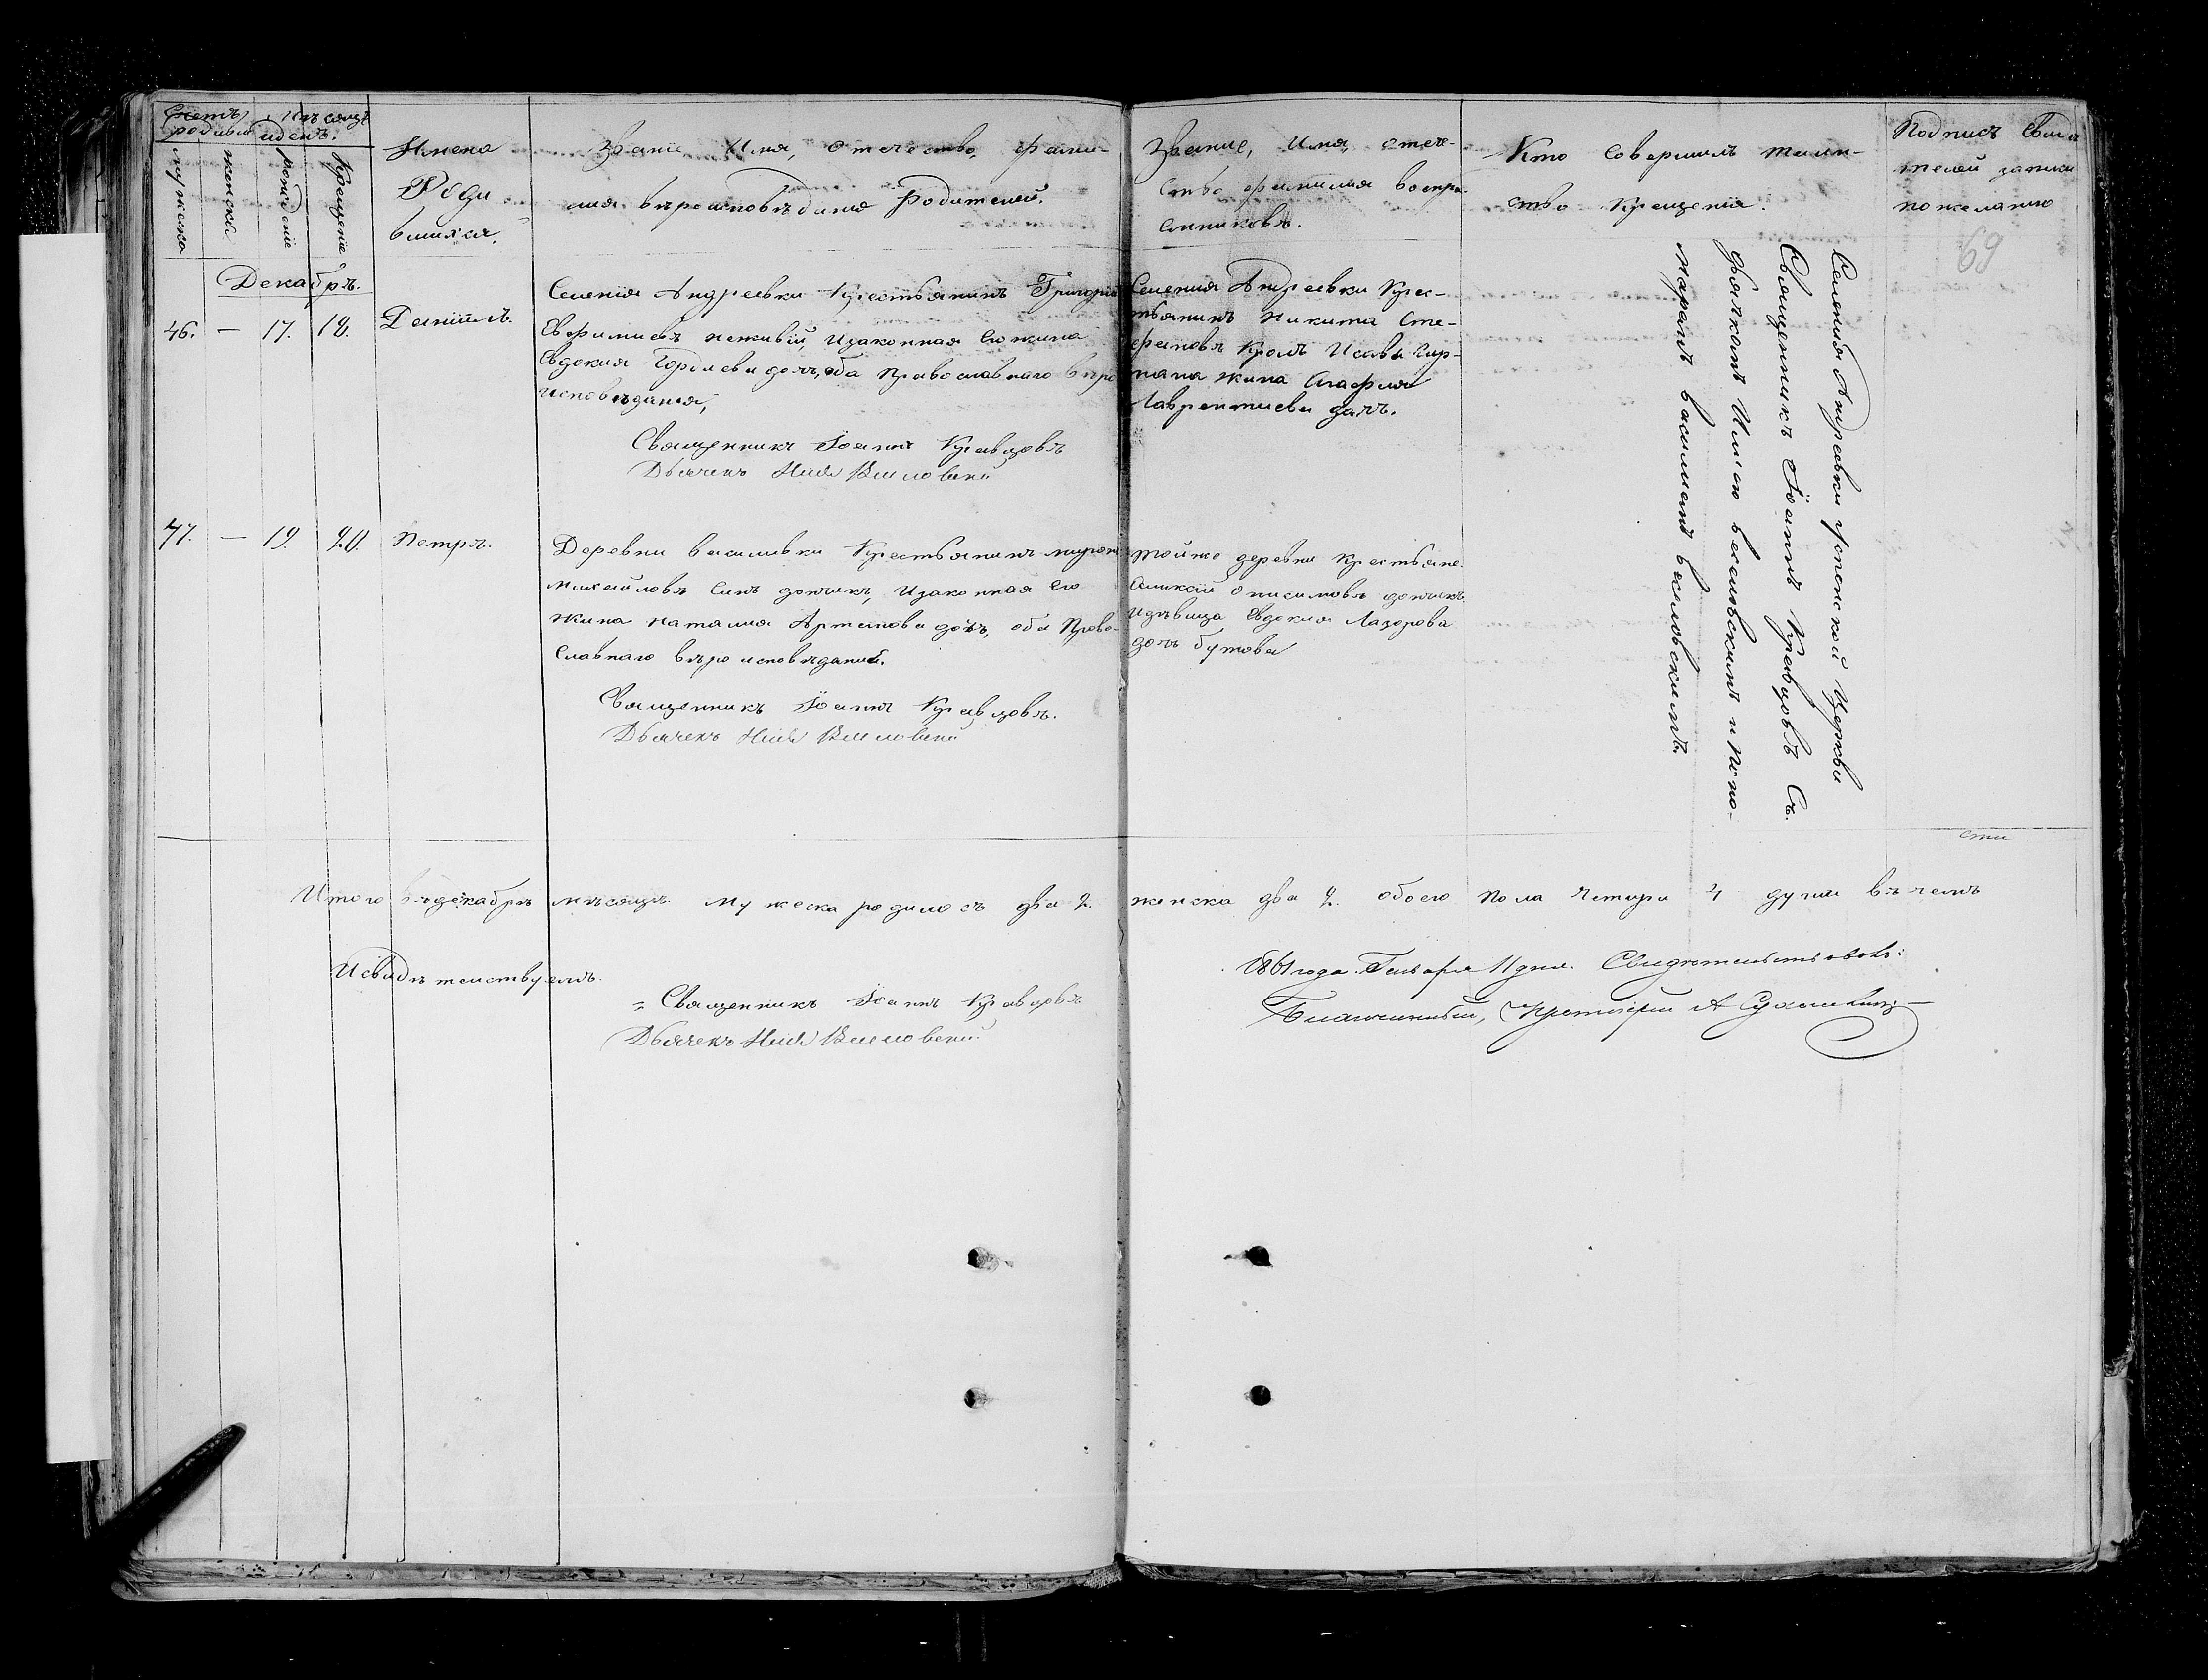 Счетъ родивш
Мѣсяцъ и день.
мужеска
женска
рожденіе
крещеніе
Имена
Роди
вшихся.
Званіе, Имя, отечество, фами-
лия вѣроисповѣдание Родителей.
Звание, Имя, отече-
ство фамилия воспри-
емниковъ.
Кто совершилъ таин-
ство крещения.
Подписъ свиде
телей записи
по желанию
69
Декабрь.
46. — 17. 18. Даніилъ.
Селенія Андреевки Крестьянинъ Григорій
Ефимиевъ неживій, изаконная его жина
Евдокия Гордиева дочь, оба Православнаго вѣро
исповѣдания,
Священникъ Іоаннъ Кравцовъ
Дьячекъ Илія Веселовскій
Селения Андреевки Крес-
тьянинъ Никита Сте-
фановъ
жина Агафия
Лаврентиева дочь.
Селения Андреевки Успенской Церкви
Священникъ Іоаннъ Кравцовъ Съ
дьячкомъ Илиею Веселовскимъ и поно-
маремъ Василиемъ Веселовскимъ.
47. — 19. 20. Петръ.
Деревни василивки Крестьянинъ мирон
михайловъ синъ дончикъ, изаконная его
жина наталия Артемова дочь, оба Право-
славнаго вѣроисповѣданий.
Священникъ Іоаннъ Кравцовъ.
Дьячекъ Илія Веселовскій
тойже деревни крестьяне.
Аликсій Онисимовъ дончикъ.
идѣвица Евдокия Лазорева
дочь бутова
Итого въ декабрѣ мѣсяцѣ. мужеска родилосъ два 2. женска два 2. обоего пола четыри 4 души въ чемъ
сти
И свидѣтелствуемъ.
= Священникъ Іоаннъ Кравцовъ
Дьячекъ Илія Веселовскій
1861 года. Генваря 11 дня. Свидѣтельствовалъ:
Благочинный, Протоіерей А